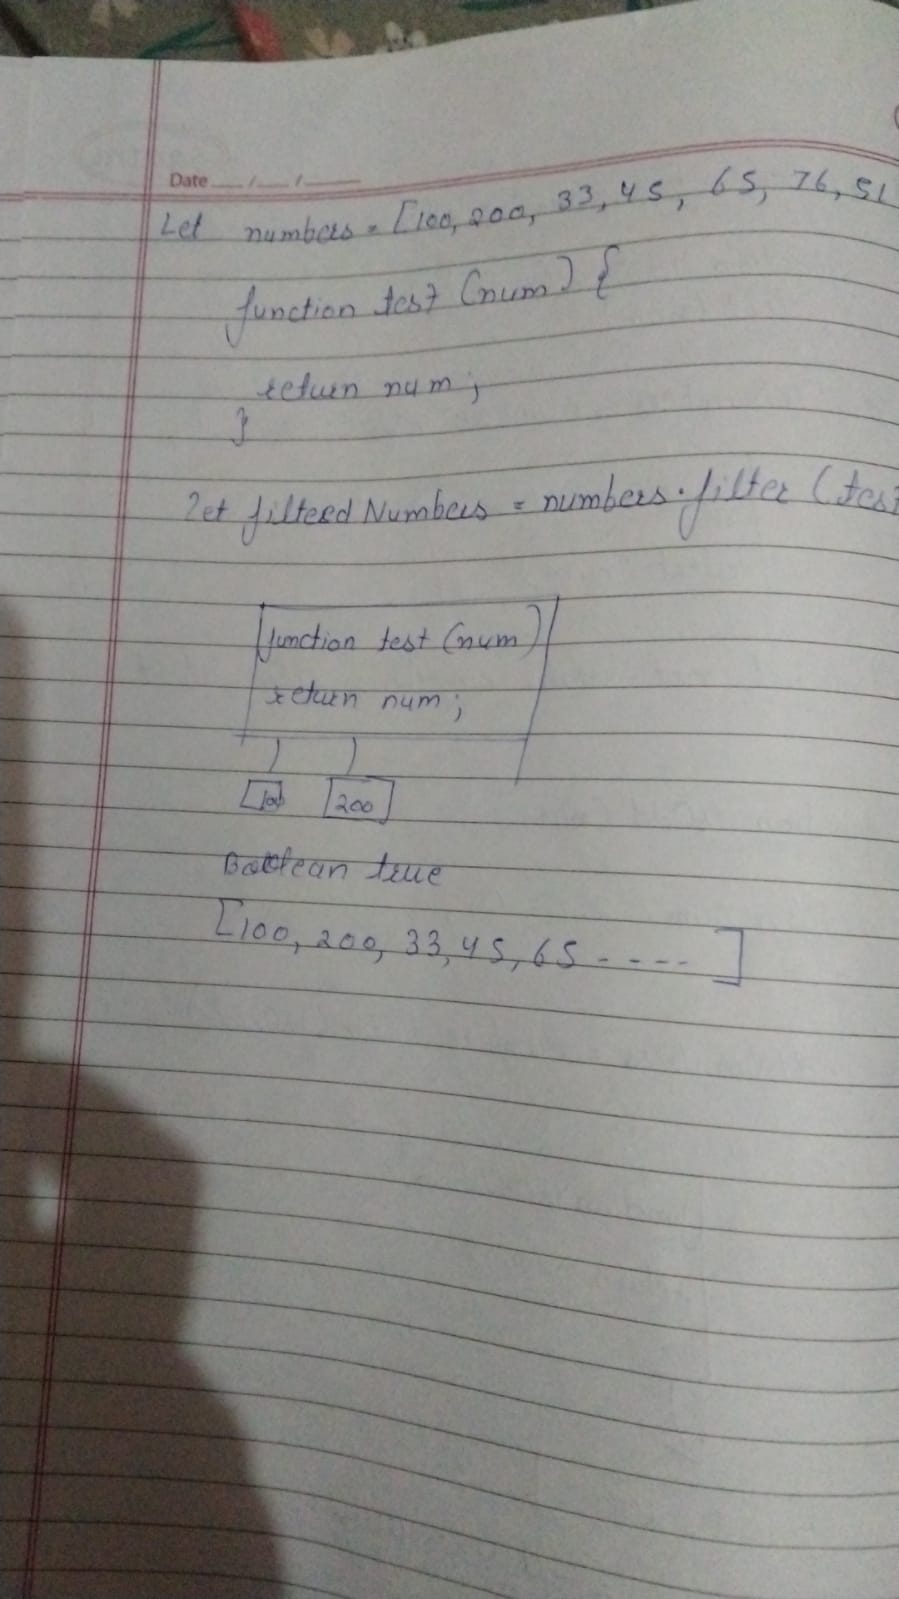 Date __/__/__
Let numbers = [100, 200, 33, 45, 65, 76, 51
function test (num) {
return num;
}
Let filterd Numbers = numbers.filter (tes
function test (num)
return num;
100 200
Boolean true
[100, 200, 33, 45, 65 - - - - ]